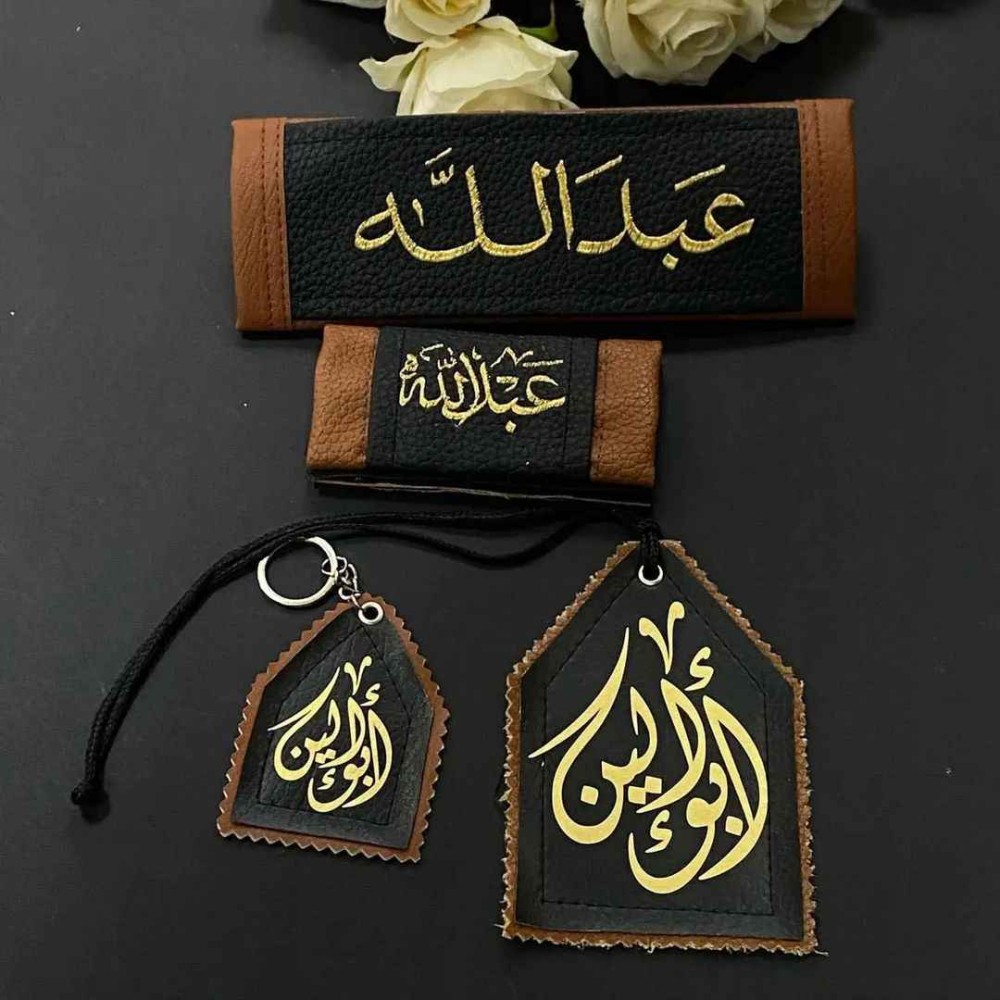 عَبدَاللَّه
عبدالله
أبو إلين
أبو إلين